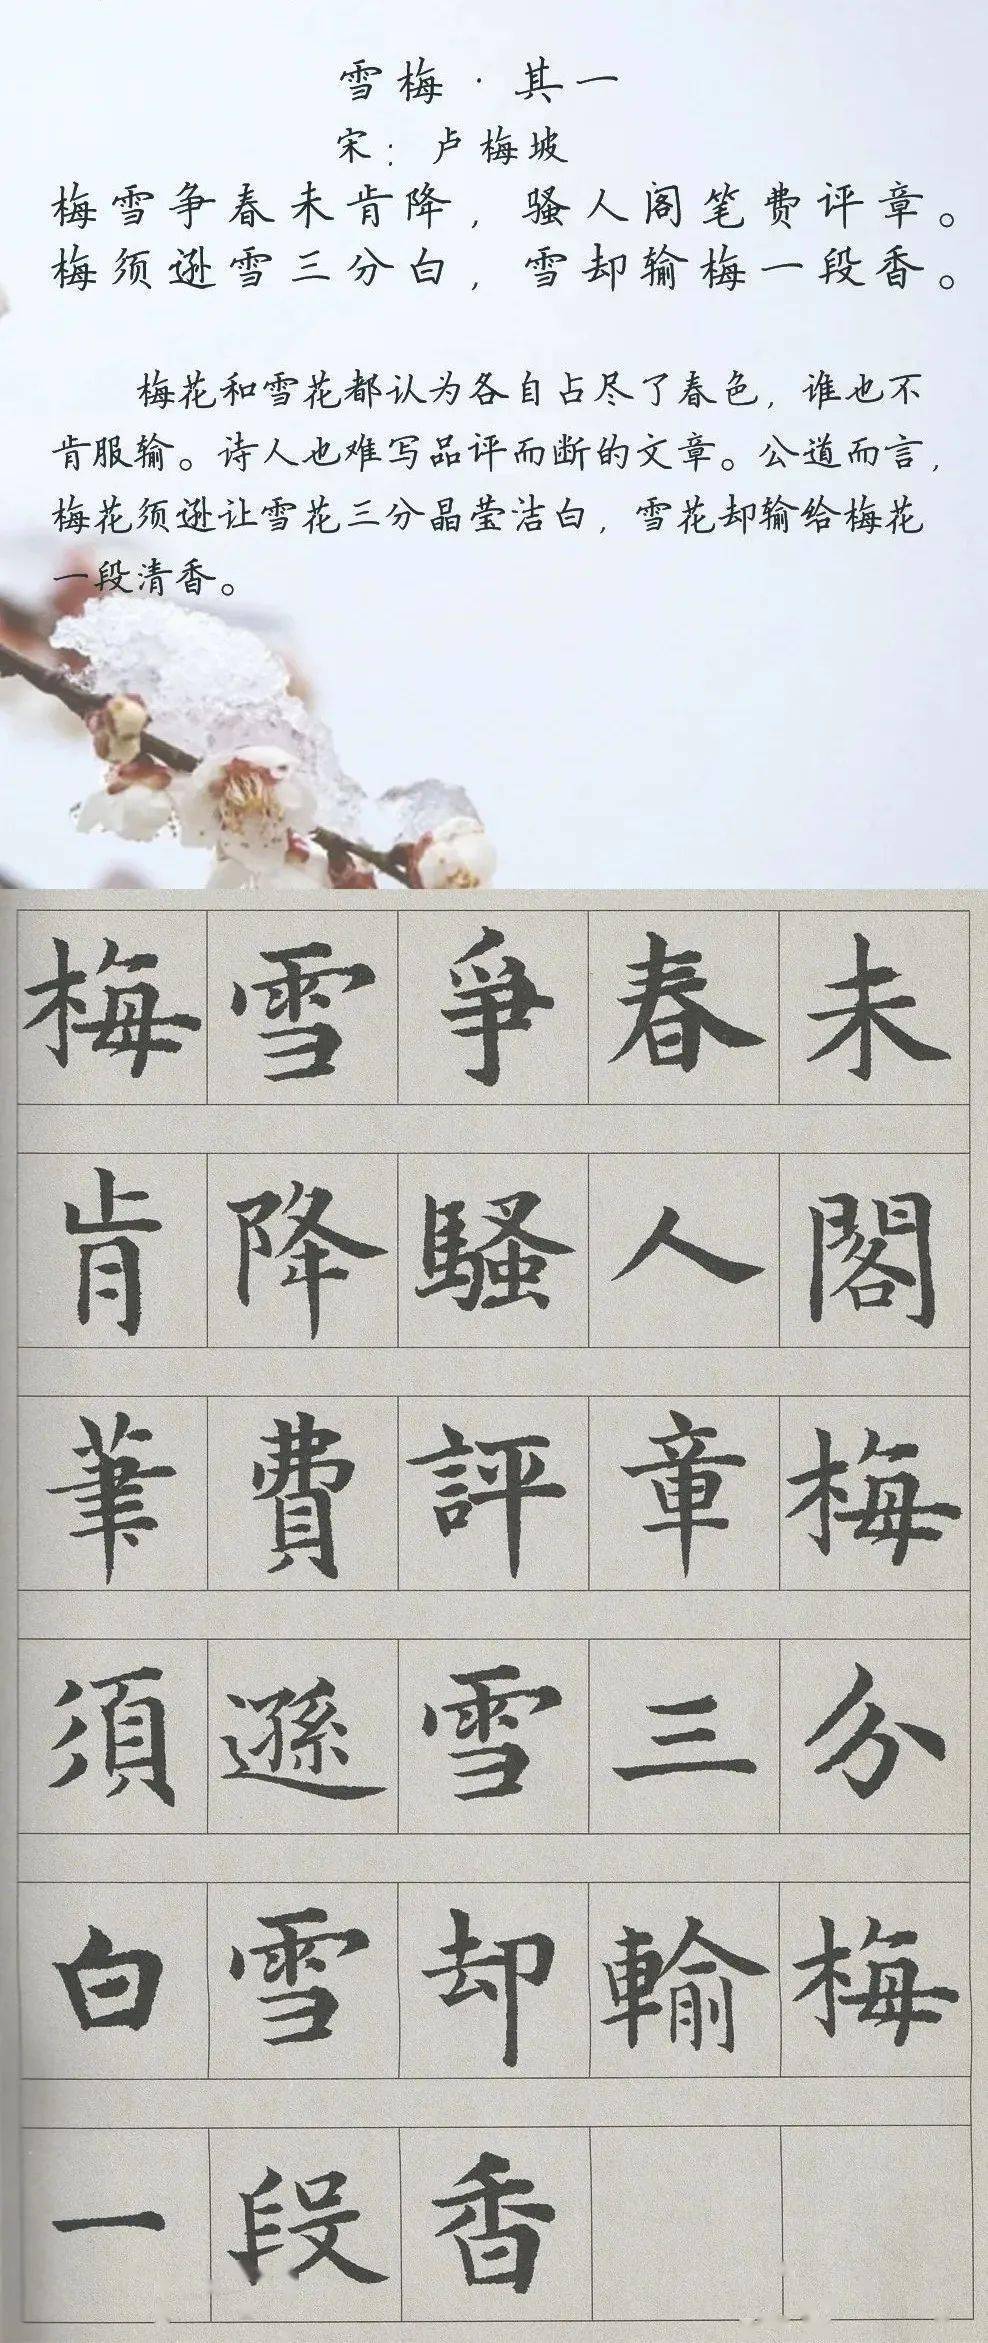 雪梅·其一
宋：卢梅坡
梅雪争春未肯降，骚人阁笔费评章。
梅须逊雪三分白，雪却输梅一段香。
梅花和雪花都认为各自占尽了春色，谁也不
肯服输。诗人也难写品评而断的文章。公道而言，
梅花须逊让雪花三分晶莹洁白，雪花却输给梅花
一段清香。
梅雪爭春未
肯降騷人閣
筆費評章梅
須遜雪三分
白雪却輸梅
一段香